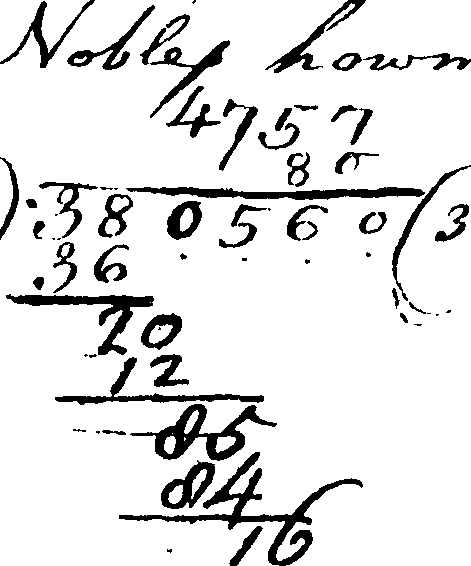 Nobles
4757
80
) 380560 ( 3
36
20
12
85
84
16